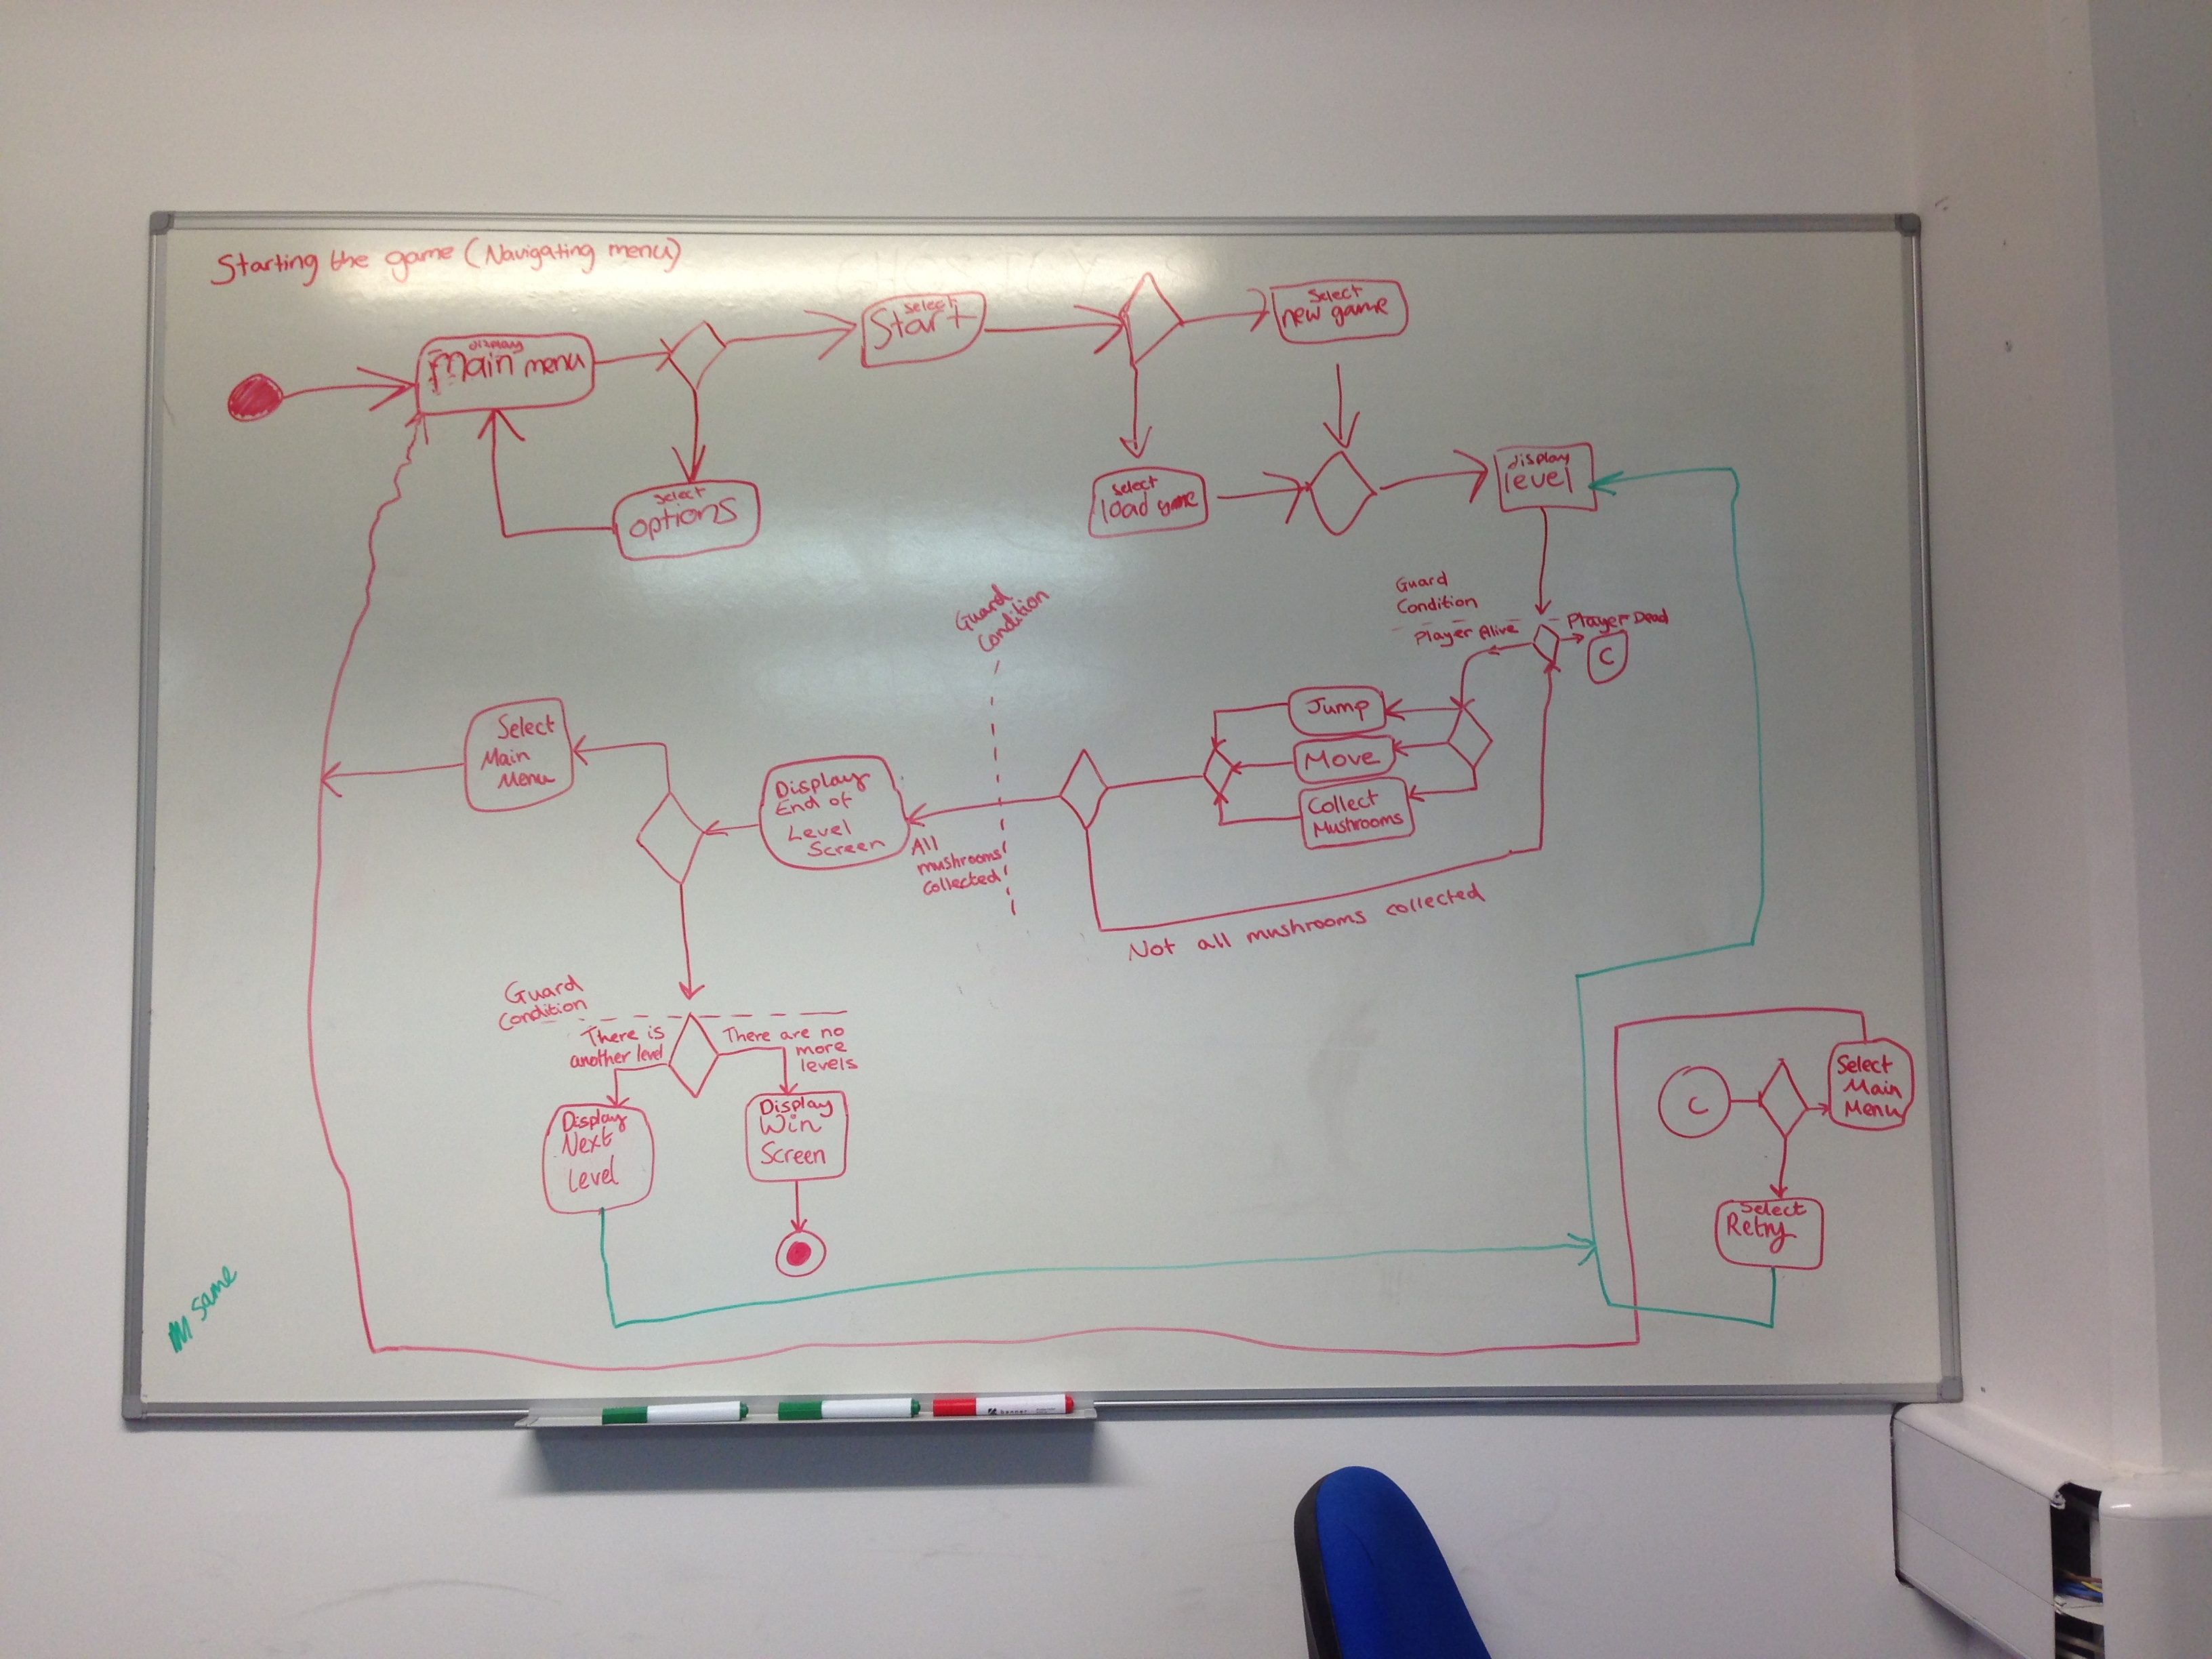 Starting the game (Navigating menu)
display
Main menu
select
Start
Select
new game
select
options
select
load game
display
level
Guard
Condition
Player Alive
Player Dead
C
Guard
Condition
Jump
Move
Collect
Mushrooms
Not all mushrooms collected
All
mushrooms
collected
Display
End of
Level
Screen
Select
Main
Menu
Guard
Condition
There is
another level
There are no
more
levels
Display
Next
Level
Display
Win
Screen
C
Select
Main
Menu
Select
Retry
same
banner